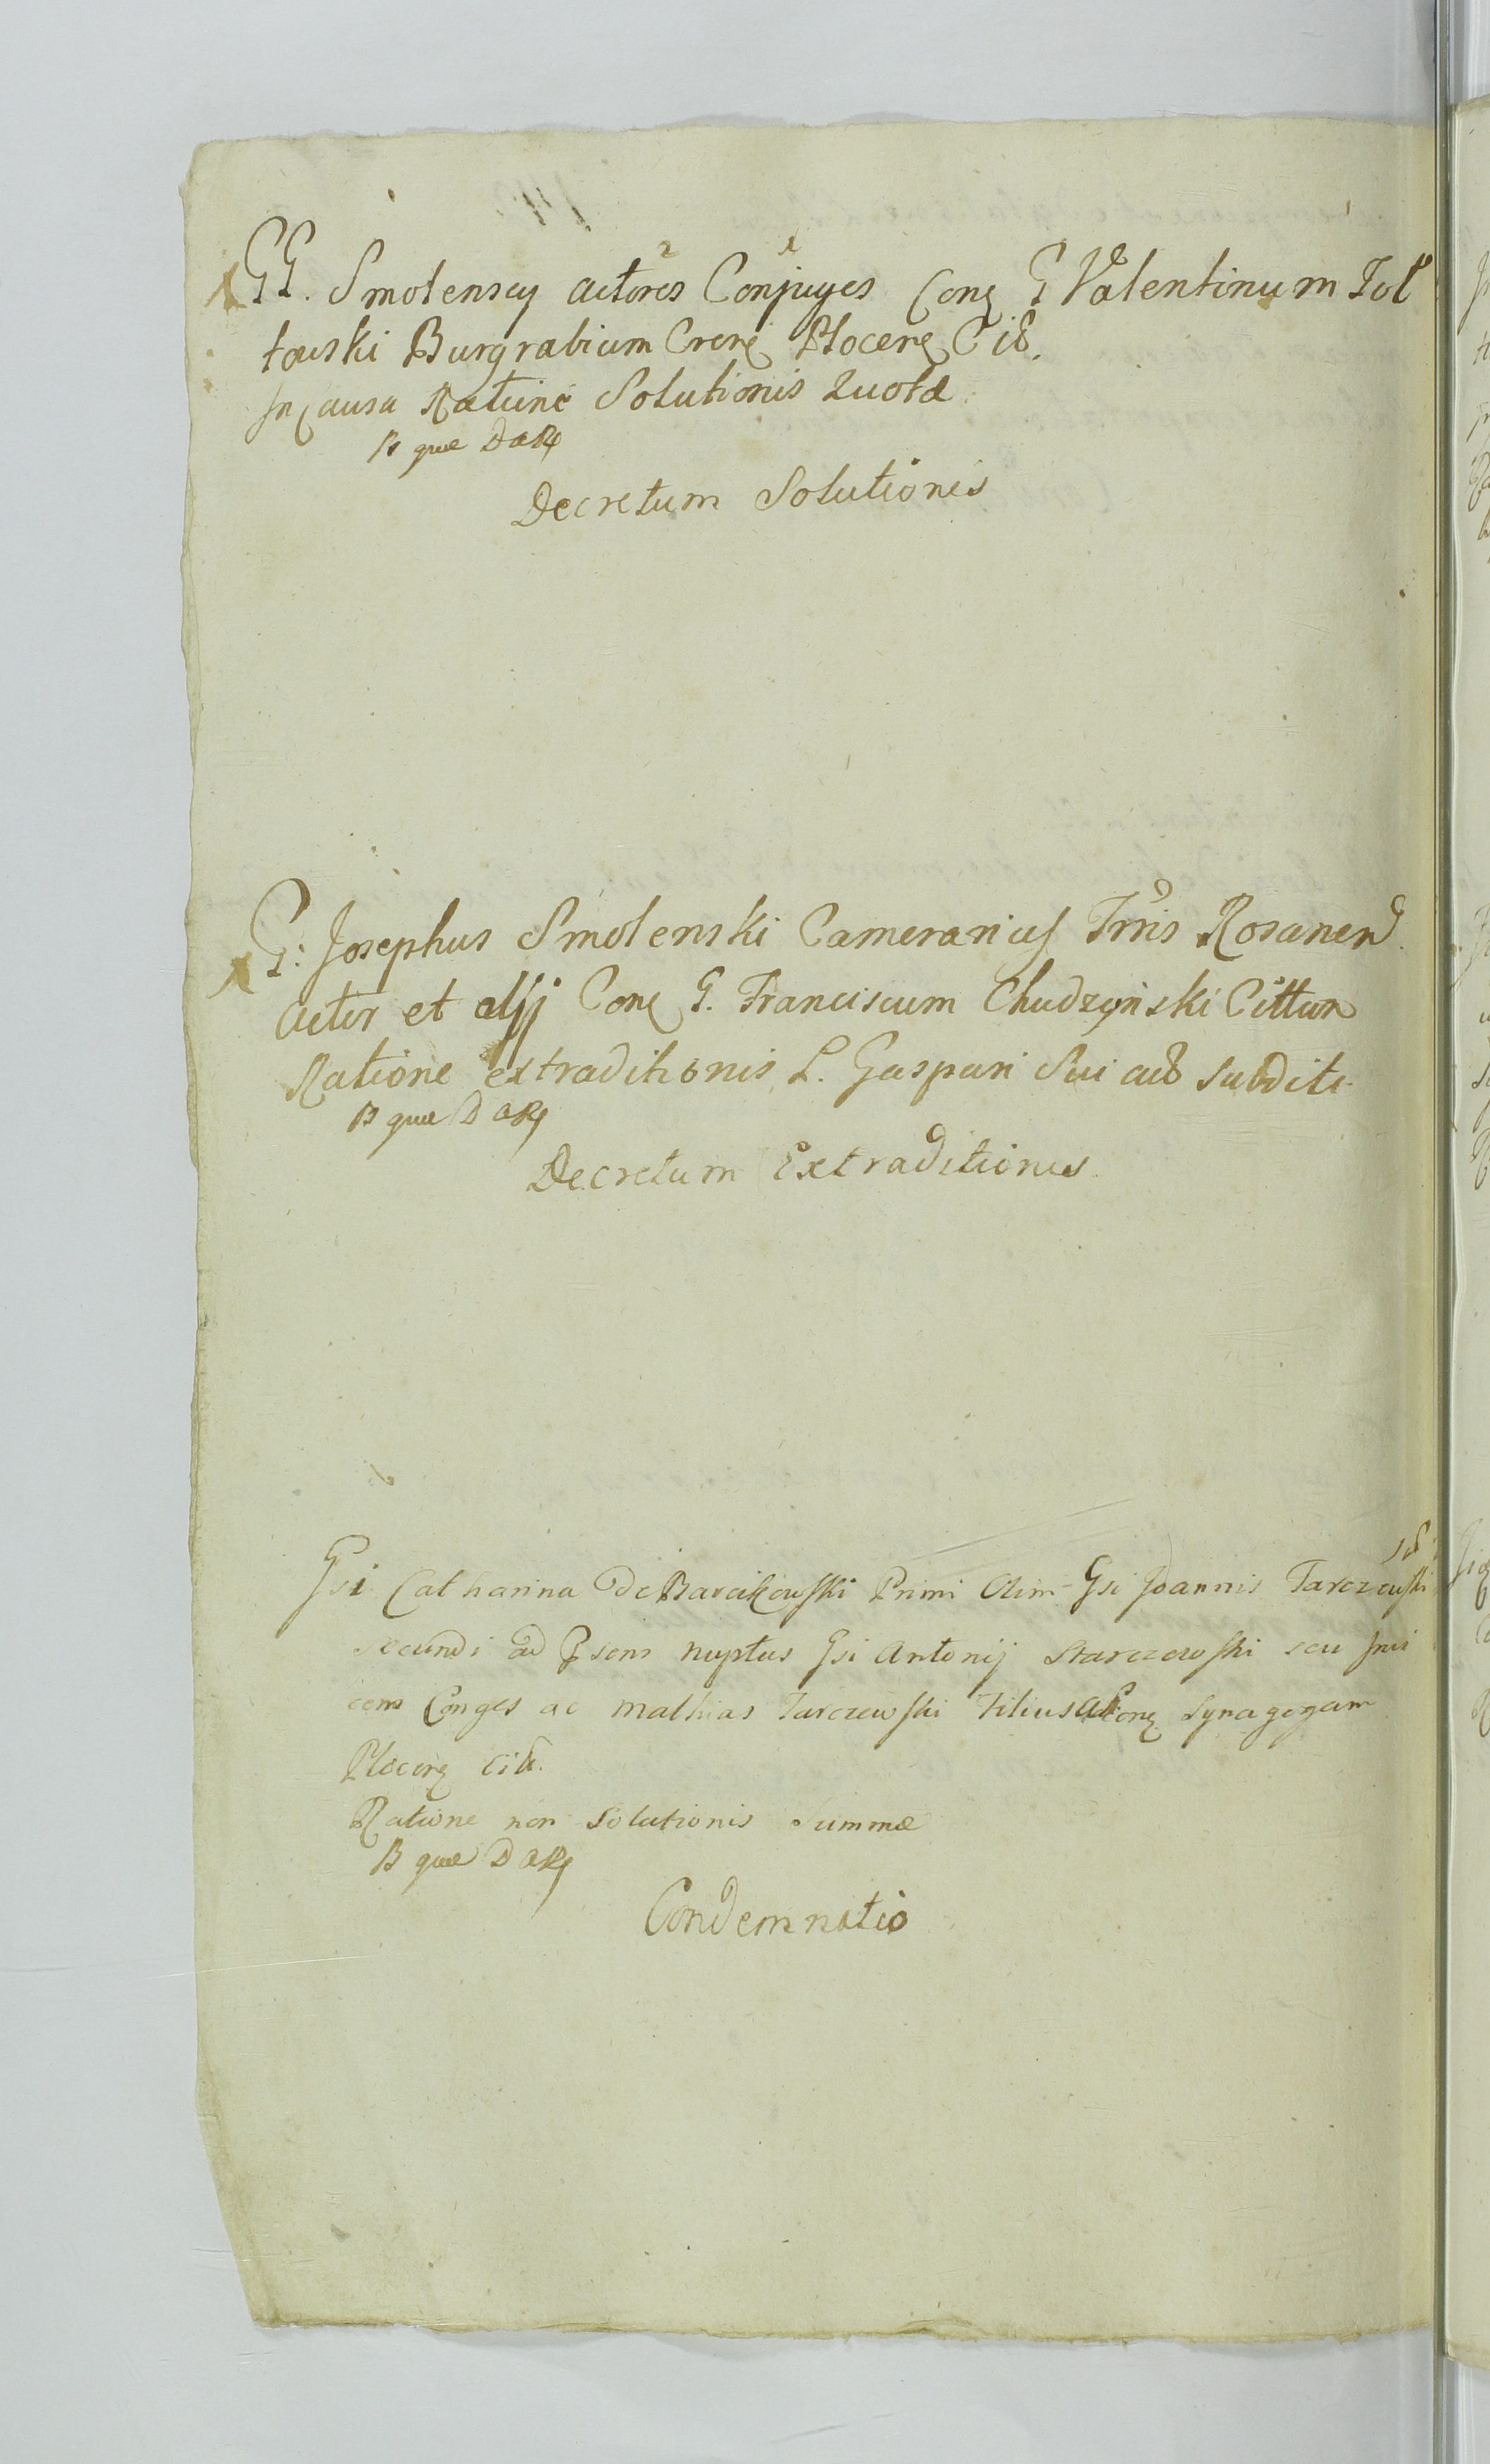 GG. Smolenscy actores Conjuges Conq G Valentinum Jol
towski Burgrabium Crenę Plocenę Cit.
In Causa Ratione Solutionis Quotæ
B quæ DaRz
Decretum Solutionis
G: Josephus Smolenski Camerarius Trris Rosanen
actor et alij Conq G. Franciscum Chudzynski Cittum
Ratione extraditionis L. Gaspari Sui subditi
B quæ DaRz
Decretum Extraditionis
Gsi Catharina de Barcikowski Primi Olim Gsi Joannis Tarczewski
Secundi ad Psens nuptus Gsi Antonij Starczewski seu Invi
cem Conges ac Mathias Tarczewski Filius Conq Synagogam
Plocenę Cit.
Ratione non Solutionis Summæ
B quæ DaRz
Condemnatio